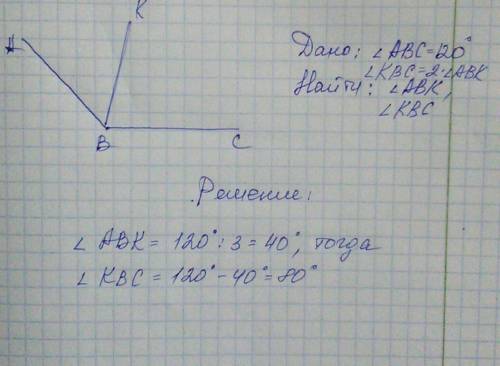 K
A
B
C
Дано: ∠ABC=120°
∠KBC=2·∠ABK
Найти: ∠ABK,
∠KBC
Решение:
∠ ABK = 120°:3=40°, тогда
∠ KBC = 120°-40°=80°